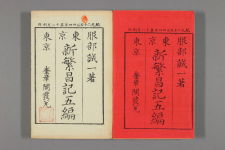 服部誠一著
東京
新繁昌記五編
東京 奎章閣發兌
服部誠一著
東京
新繁昌記五編
東京 奎章閣發兌